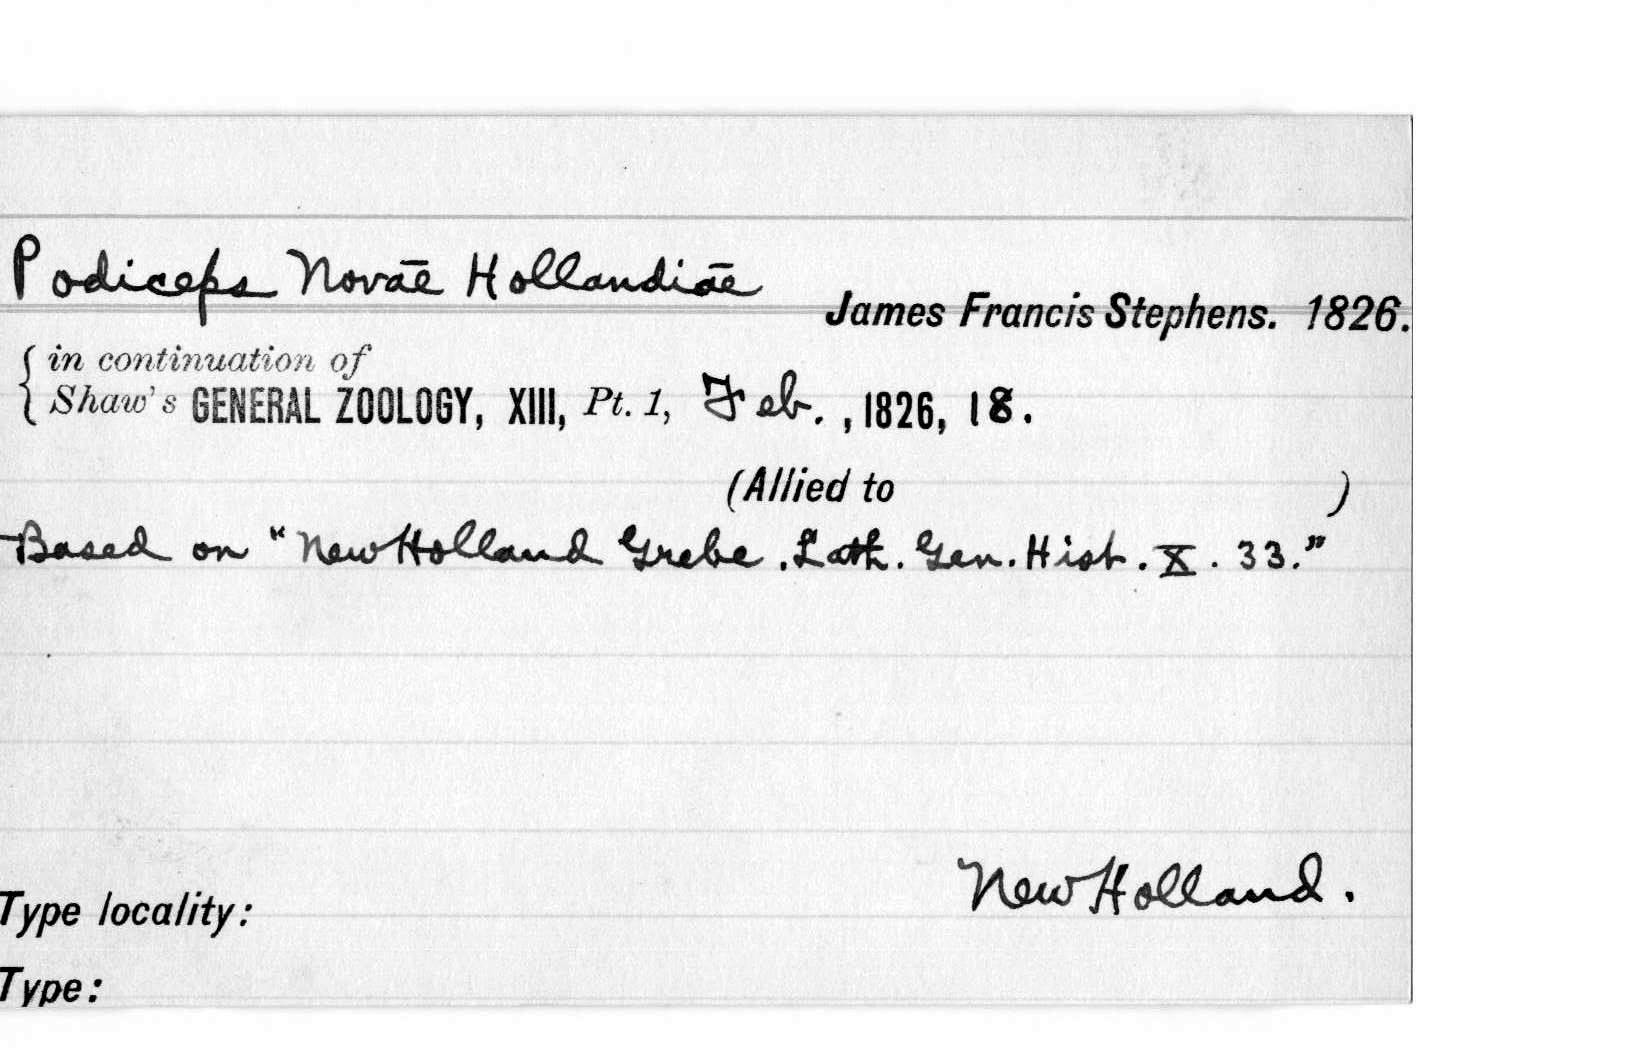 Podiceps Novāe Hollandiāe
James Francis Stephens. 1826.
{ in continuation of
Shaw's GENERAL ZOOLOGY, XIII, Pt. 1, Feb. , 1826, 18.
(Allied to )
Based on "New Holland Grebe . Lath. Gen. Hist. X. 33."
New Holland.
Type locality:
Type: